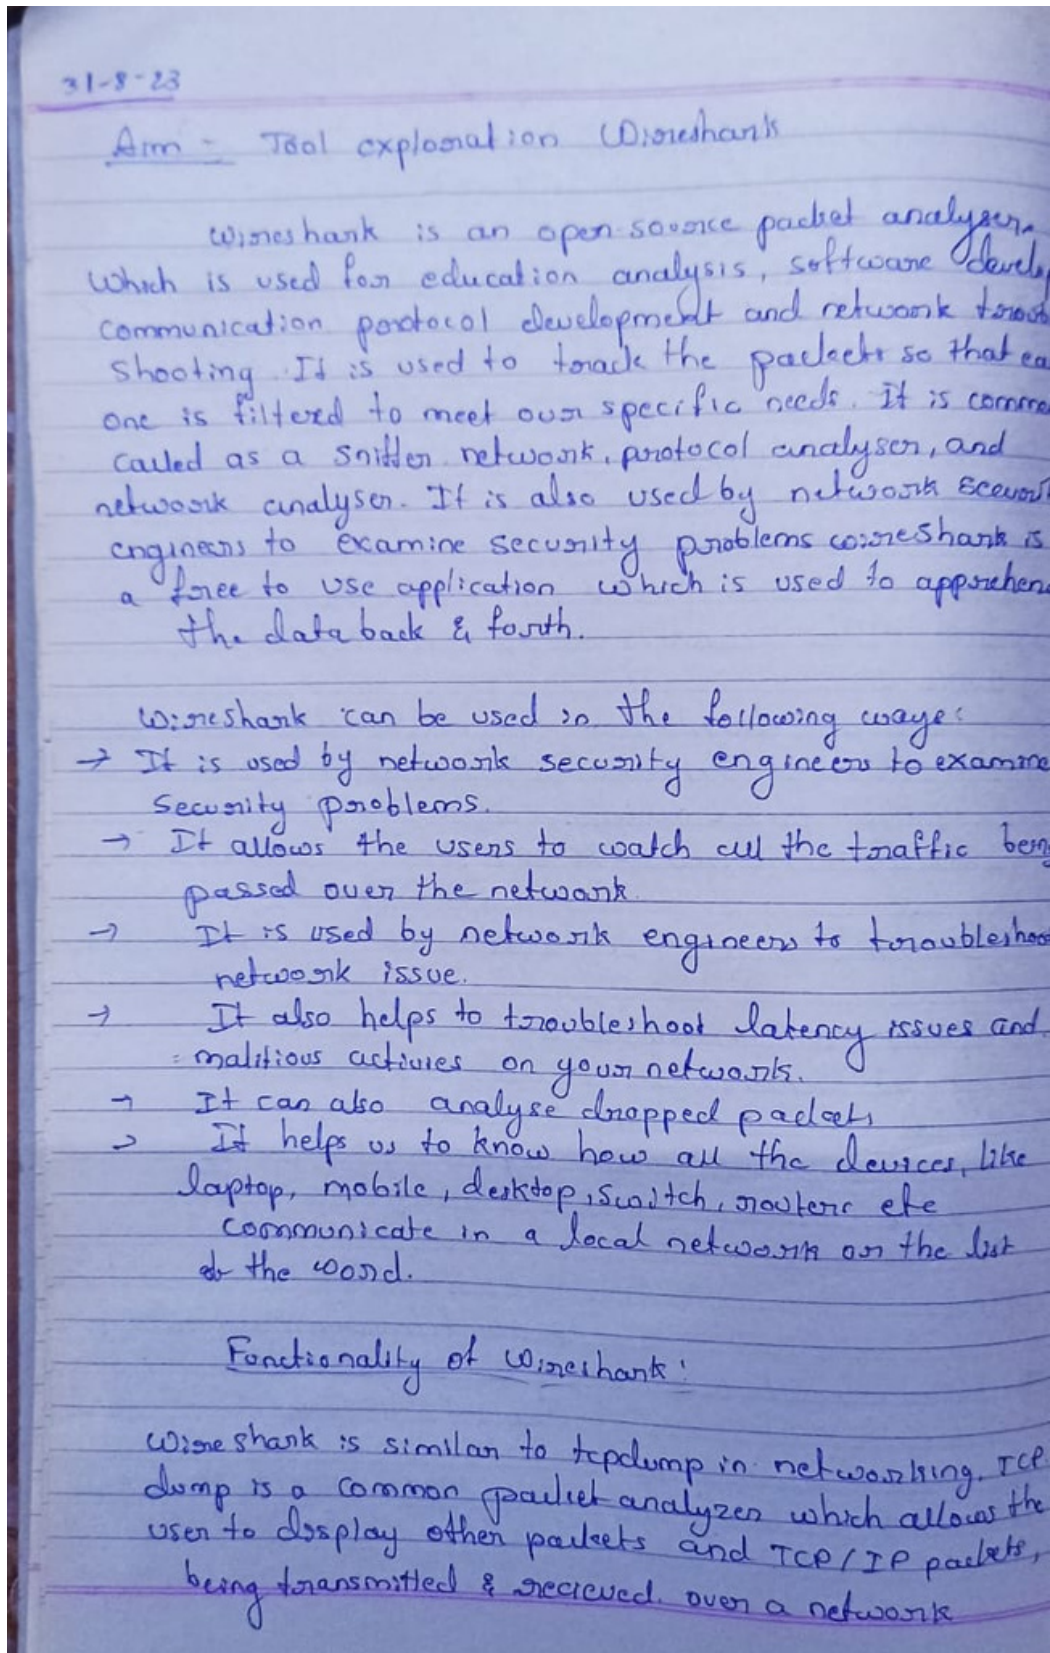 31-8-23
Aim - Tool exploration Wireshark
Wireshark is an open-source packet analyser,
which is used for education analysis, software develo
communication protocol development and network troub
shooting. It is used to track the packets so that ea
one is filtered to meet our specific needs. It is commo
called as a sniffer network, protocol analyser, and
network analyser. It is also used by network
engineers to examine security problems wireshark is
a free to use application which is used to apprehen
the data back & forth.
Wireshark can be used in the following ways:
→ It is used by network security engineers to examine
security problems.
→ It allows the users to watch all the traffic being
passed over the network.
→ It is used by network engineers to troubleshoo
network issue.
→ It also helps to troubleshoot latency issues and
malitious activies on your network.
→ It can also analyse dropped packets
→ It helps us to know how all the devices, like
laptop, mobile, desktop, switch, routers etc
communicate in a local network or the list
the word.
Functionality of Wireshark:
Wireshark is similar to tcpdump in networking. TCP
dump is a common packet analyzer which allows the
user to display other packets and TCP/IP packets,
being transmitted & recieved. over a network